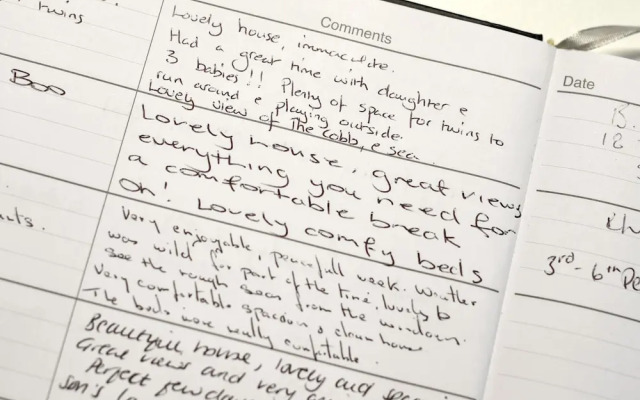 Comments
twins
Lovely house, immaculate.
Had a great time with daughter e
3 babies!! Plenty of space for twins to
run around e playing outside.
Lovely view of The Cobb, e sea.
Boo
Lovely house, great views
everything you need for
a comfortable break
Oh! Lovely comfy beds
Very enjoyable, peacefull week. Weather
was wild for part of the time, lovely to
see the rough seas from the windows.
Very comfortable spacious & clean house
The beds were really comfortable.
Beautyful house, lovely and
Great views and very
Perfect few da
son's
Date
15.
18
3rd - 6th De